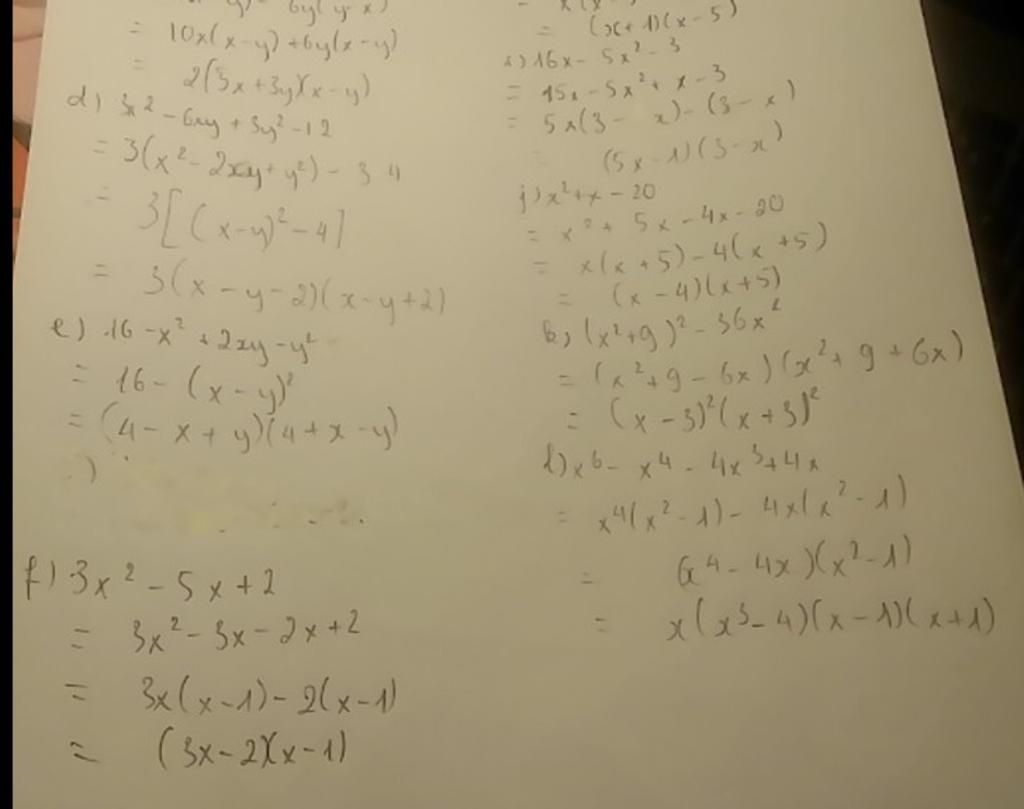 6y(y-x)
= 10x(x-y)+6y(x-y)
= 2(5x+3y)(x-y)
d) 3x² - 6xy + 3y² - 12
= 3(x² - 2xy + y²) - 3 4
= 3[(x-y)² - 4]
= 3(x - y - 2)(x - y + 2)
e) 16 - x² + 2xy - y²
= 16 - (x - y)²
= (4 - x + y)(4 + x - y)
)
f) 3x² - 5x + 2
= 3x² - 3x - 2x + 2
= 3x(x - 1) - 2(x - 1)
= (3x - 2)(x - 1)
= (x+1)(x-5)
i) 16x - 5x² - 3
= 15x - 5x² + x - 3
= 5x(3 - x) - (3 - x)
= (5x - 1)(3 - x)
j) x² + x - 20
= x² + 5x - 4x - 20
= x(x + 5) - 4(x + 5)
= (x - 4)(x + 5)
k) (x² + 9)² - 36x²
= (x² + 9 - 6x)(x² + 9 + 6x)
= (x - 3)²(x + 3)²
l) x⁶ - x⁴ - 4x³ + 4x
= x⁴(x² - 1) - 4x(x² - 1)
= (x⁴ - 4x)(x² - 1)
= x(x³ - 4)(x - 1)(x + 1)